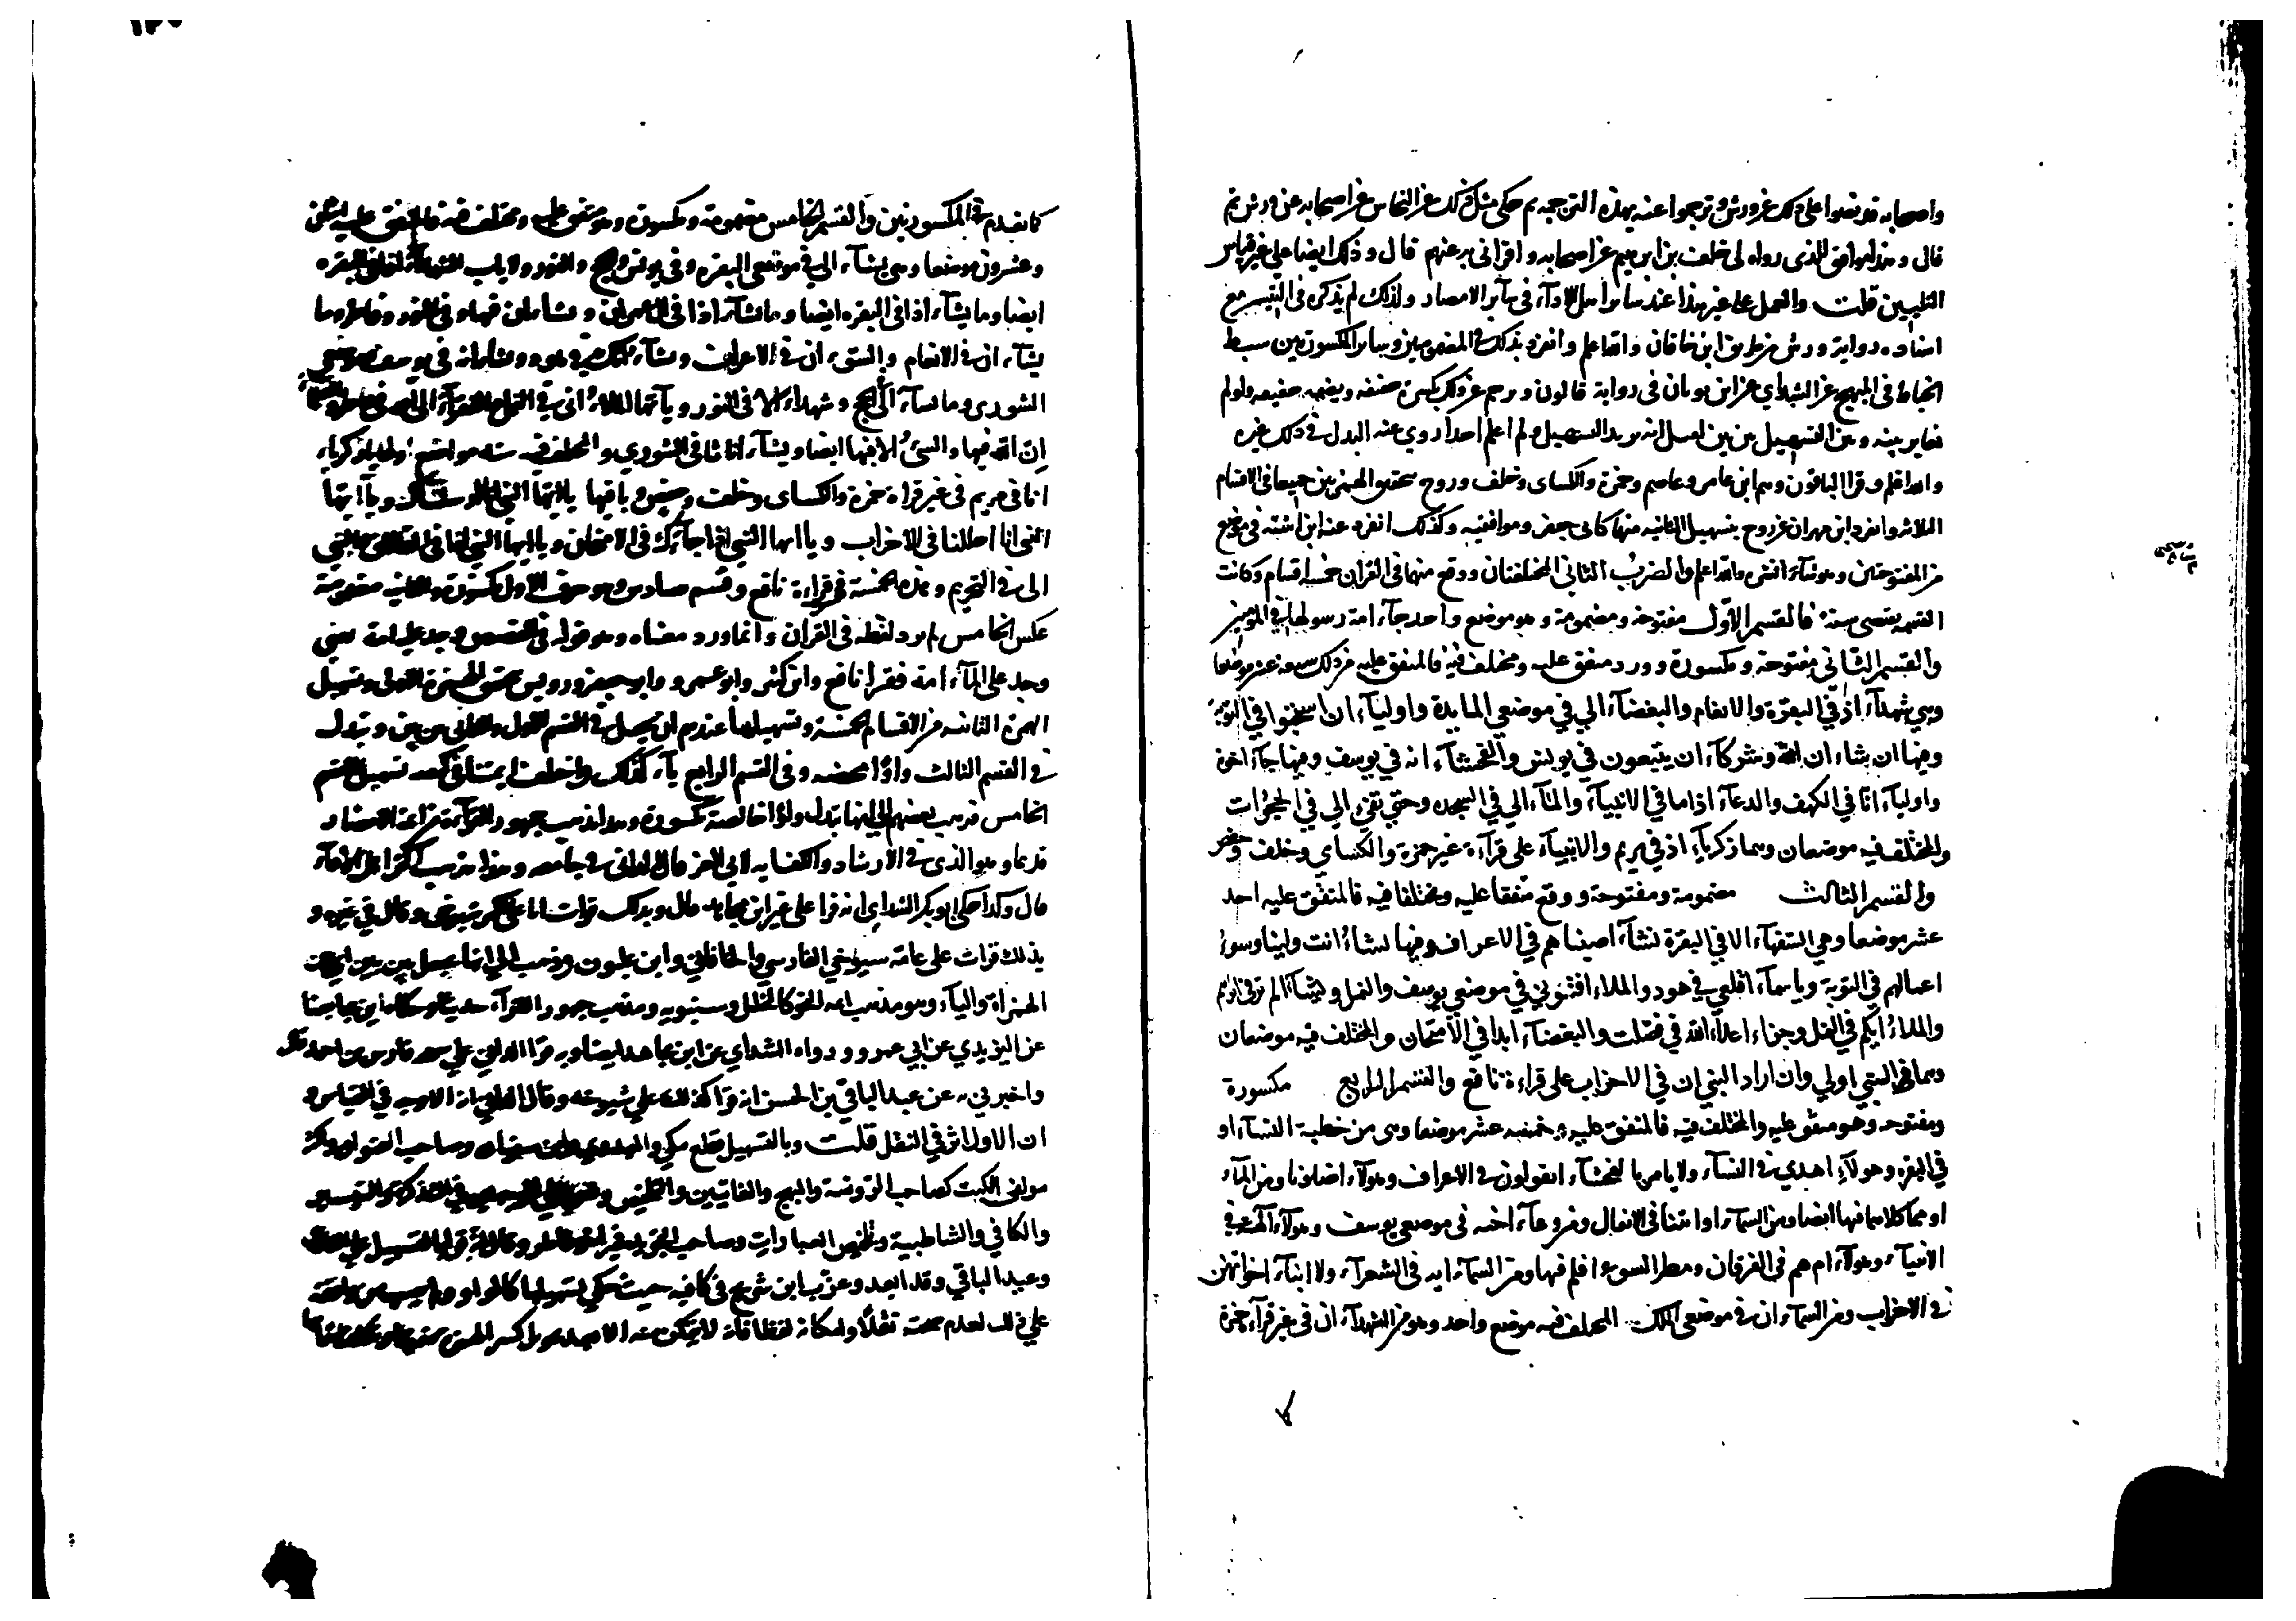 واصحابه قد نصوا على ذلك عن ورش وترجموا عنه بهذه الترجمة ثم حكى مثل ذلك عن النحاس عن اصحابه عن ورش ثم
قال وهذا موافق للذى رواه لى خلف بن ابراهيم عن اصحابه واقرانى به عنهم قال وذلك ايضا على غير قياس
التليين قلت والعمل على غير هذا عند سائر اهل الاداء فى سائر الامصار ولذلك لم يذكره فى التيسير مع
اسناده رواية ورش من طريق ابن خاقان والله اعلم وانفرد بذلك فى المضمومتين وسائر المكسورتين سبط
الخياط فى المبهج عن الشذاي عن ابن بويان فى رواية قالون وترجم عن ذلك بكسرة خفيفه وبضمه خفيفه ولو لم
يغاير بينه وبين التسهيل بين بين لقيل انه يريد التسهيل ولم اعلم احدا روي عنه البدل فى ذلك غيره
والله اعلم وقرا الباقون وهم ابن عامر وعاصم وحمزة والكساى وخلف وروح بتحقيق الهمزتين جميعا فى الاقسام
الثلاثه وانفرد ابن مهران عن روح بتسهيل الثانيه منها كابى جعفر وموافقيه وكذلك انفرد عنه ابن اشته فى موضع
من المفتوحتين وهو شآء انشره والله اعلم والضرب الثانى المختلفتان ووقع منهما فى القران خمسة اقسام وكانت
القسمه يقتضى ستة فالقسم الاول مفتوحة ومضمومة وهو موضع واحد جآء امة رسولها فى المومنين
والقسم الثانى مفتوحة ومكسورة وورد متفق عليه ومختلف فيه فالمتفق عليه من ذلك سبعة عشر موضعا
وهي شهدآء اذ في البقرة والانعام والبغضآء الي في موضعي المايدة واوليآء ان استحبوا في التوبة
وفيها ان شاء ان الله وشركآء ان يتبعون في يونس والفحشآء انه في يوسف وفيها جآء اخوة
واوليآء انا في الكهف والدعآء اذا ما في الانبيآء والمآء الي في السجده وحتي تفئ الي في الحجرات
والمختلف فيه موضعان وهما زكريآء اذ في مريم والانبيآء على قرآءة غير حمزة والكساي وخلف وحفص
والقسم الثالث مضمومة ومفتوحة ووقع متفقا عليه ومختلفا فيه فالمتفق عليه احد
عشر موضعا وهي السفهآء الا في البقرة نشآء اصبناهم في الاعراف وفيها تشاء انت ولينا وسوء
اعمالهم في التوبة وياسمآء اقلعي في هود والملاء افتوني في موضعي يوسف والنمل ويشآء الم تر فى ابراهيم
والملاء ايكم في النمل وجزاء اعدآء الله في فصلت والبغضآء ابدا في الامتحان والمختلف فيه موضعان
وهما النبي اولي وان اراد النبي ان في الاحزاب على قراءة نافع والقسم الرابع مكسورة
ومفتوحه وهو متفق عليه والمختلف فيه فالمتفق عليه خمسه عشر موضعا وهى من خطبة النساء او
في البقره وهولآء اهدي فى النسآء ولا يامر بالفحشآء اتقولون فى الاعراف وهولآء اضلونا ومن المآء
او مما كلاهما فيها ايضا ومن السمآء او ائتنا فى الانفال ومن وعآء اخيه فى موضعى يوسف وهولآء آلهة فى
الانبيآء وهولآء ام هم في الفرقان ومطر السوء افلم فيها ومن السمآء ايه فى الشعرآء ولا ابنآء اخواتهن
فى الاحزاب ومن السمآء ان فى موضعى الملك المختلف فيه موضع واحد وهو من الشهدآء ان فى غير قرآءة حمزة
كما تقدم فى المكسورتين والقسم الخامس مضمومة ومكسورة وهو متفق عليه ومختلف فيه فالمتفق عليه اثنين
وعشرون موضعا وهى يشآء الي في موضعى البقره وفى يونس والحج والنور ولا ياب الشهدآء اذا فى البقره
ايضا وما يشآء اذا فى ال عمران ونشآء ان فيها وفى النور وفاطر وما
يشآء ان فى الانعام والسوء ان فى الاعراف ونشآء انك فى هود ويشآء انه فى يوسف
الشورى وما نشآء الى فى الحج وشهدآء الا فى النور ويآءيها الملاء انى فى النمل والفقرآء الى الله فى فاطر
ان الله فيها والسئ الا فيها ايضا ويشآء اناثا فى الشورى والمختلف فيه ستة مواضع اولها يا زكريآء
انا فى مريم فى غير قراة حمزة والكساى وخلف وحفص وباقيها يا ايها النبى انا ارسلناك ويآ ايها
النبى انا احللنا فى الاحزاب ويا ايها النبى اذا جآءك فى الامتحان ويا ايها النبى اذا فى الطلاق والنبى
الى فى التحريم وهذه الخمسة فى قراءة نافع وقسم سادس وهو كون الاولى مكسورة والثانيه مضمومة
عكس الخامس لم يرد لفظه فى القران وانما ورد معناه وهو قوله فى القصص وجد عليه امة
وجد على المآء امة فقرا نافع وابن كثير وابو عمرو وابو جعفر ورويس بتحقيق الهمزة الاولى وتسهيل
الهمزة الثانيه من الاقسام الخمسة وتسهيلها عندهم ان تجعل فى القسم الاول والثانى بين بين وتبدل
فى القسم الثالث واوًا محضه وفى القسم الرابع يآء كذلك واختلف ايمتنا فى كيفية تسهيل القسم
الخامس فذهب بعضهم الى انها تبدل واوًا خالصة مكسورة وهذا مذهب جمهور القرآء من ائمة الامصار
قديما وهو الذى فى الارشاد والكفايه لابي العز قال الدانى فى جامعه وهذا مذهب اكثر اهل الادآء
قال وكذا حكى ابو بكر الشذاي انه قرا على غير ابن مجاهد قال وبذلك قرات انا على اكثر شيوخى وقال في غيره و
بذلك قرات على عامة شيوخي الفارسي والخاقاني وابن غلبون وذهب بعضهم الي انها تجعل بين بين اى بين
الهمزة والياء وهو مذهب ايمة النحو كالخليل وسيبويه ومذهب جمهور القرآء حديثا وحكاه ابن مجاهد
عن اليزيدي عن ابي عمرو ورواه الشذاي عن ابن مجاهد ايضا وبه قرا الدانى علي شيخه فارس بن احمد قال
واخبرني عن عبد الباقي بن الحسن انه قرا كذلك علي شيوخه وقال الدانى انه الاوجه في القياس و
ان الاول اثر في النقل قلت وبالتسهيل قطع مكي والمهدوي وابن سفيان وصاحب العنوان واكثر
مولفى الكتب كصاحب الروضة والمبهج والغايتين والتلخيص ونص على الوجهين في التذكرة والتيسير
والكافي والشاطبية وتلخيص العبارات وصاحب التجريد
وعبد الباقي وقد ابعد واغرب ابن شريح في كافيه حيث حكي تسهيلها كالواو ولم يصب من وافقه
علي ذلك لعدم صحته نقلًا وامكانه لفظا فانه لا يتمكن منه الا بعد تحويل كسر الهمزة